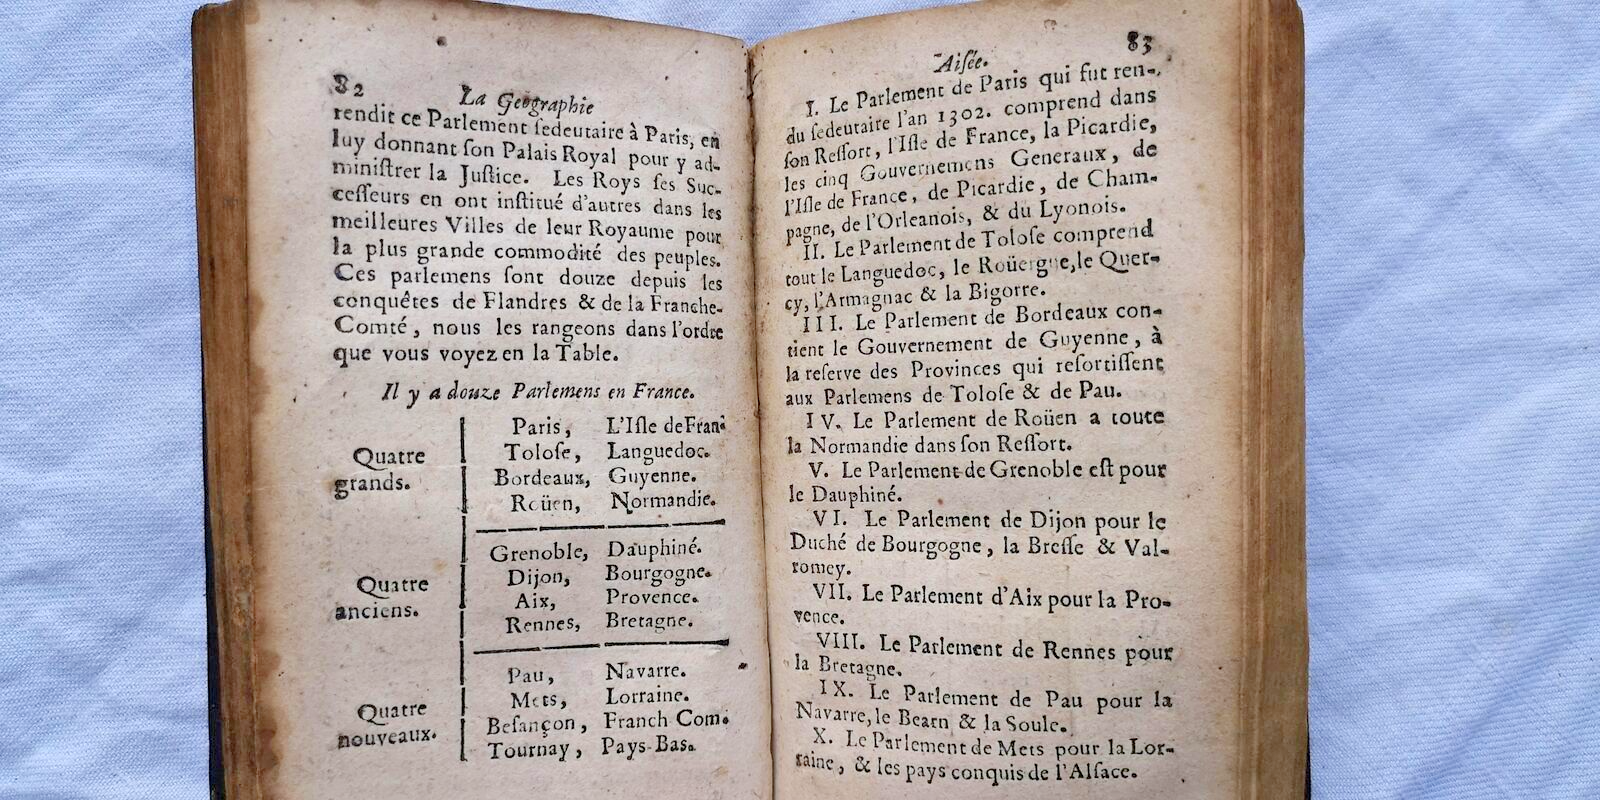 82
La Geographie
rendit ce Parlement ſedeutaire à Paris, en
luy donnant ſon Palais Royal pour y ad-
miniſtrer la Juſtice. Les Roys ſes Suc-
ceſſeurs en ont inſtitué d'autres dans les
meilleures Villes de leur Royaume pour
la plus grande commodité des peuples.
Ces parlemens ſont douze depuis les
conquêtes de Flandres & de la Franche-
Comté, nous les rangeons dans l'ordre
que vous voyez en la Table.
Il y a douze Parlemens en France.
Quatre grands.
Paris, L'Iſle de Fran.
Toloſe, Languedoc.
Bordeaux, Guyenne.
Roüen, Normandie.
Quatre anciens.
Grenoble, Dauphiné.
Dijon, Bourgogne.
Aix, Provence.
Rennes, Bretagne.
Quatre nouveaux.
Pau, Navarre.
Mets, Lorraine.
Beſançon, Franch Com.
Tournay, Pays-Bas.
Aiſée.
83
I. Le Parlement de Paris qui fut ren-
du ſedeutaire l'an 1302. comprend dans
ſon Reſſort, l'Iſle de France, la Picardie,
les cinq Gouvernemens Generaux, de
l'Iſle de France, de Picardie, de Cham-
pagne, de l'Orleanois, & du Lyonois.
II. Le Parlement de Toloſe comprend
tout le Languedoc, le Roüergue, le Quer-
cy, l'Armagnac & la Bigorre.
III. Le Parlement de Bordeaux con-
tient le Gouvernement de Guyenne, à
la reſerve des Provinces qui reſortiſſent
aux Parlemens de Toloſe & de Pau.
IV. Le Parlement de Roüen a toute
la Normandie dans ſon Reſſort.
V. Le Parlement de Grenoble eſt pour
le Dauphiné.
VI. Le Parlement de Dijon pour le
Duché de Bourgogne, la Breſſe & Val-
romey.
VII. Le Parlement d'Aix pour la Pro-
vence.
VIII. Le Parlement de Rennes pour
la Bretagne.
IX. Le Parlement de Pau pour la
Navarre, le Bearn & la Soule.
X. Le Parlement de Mets pour la Lor-
raine, & les pays conquis de l'Alſace.